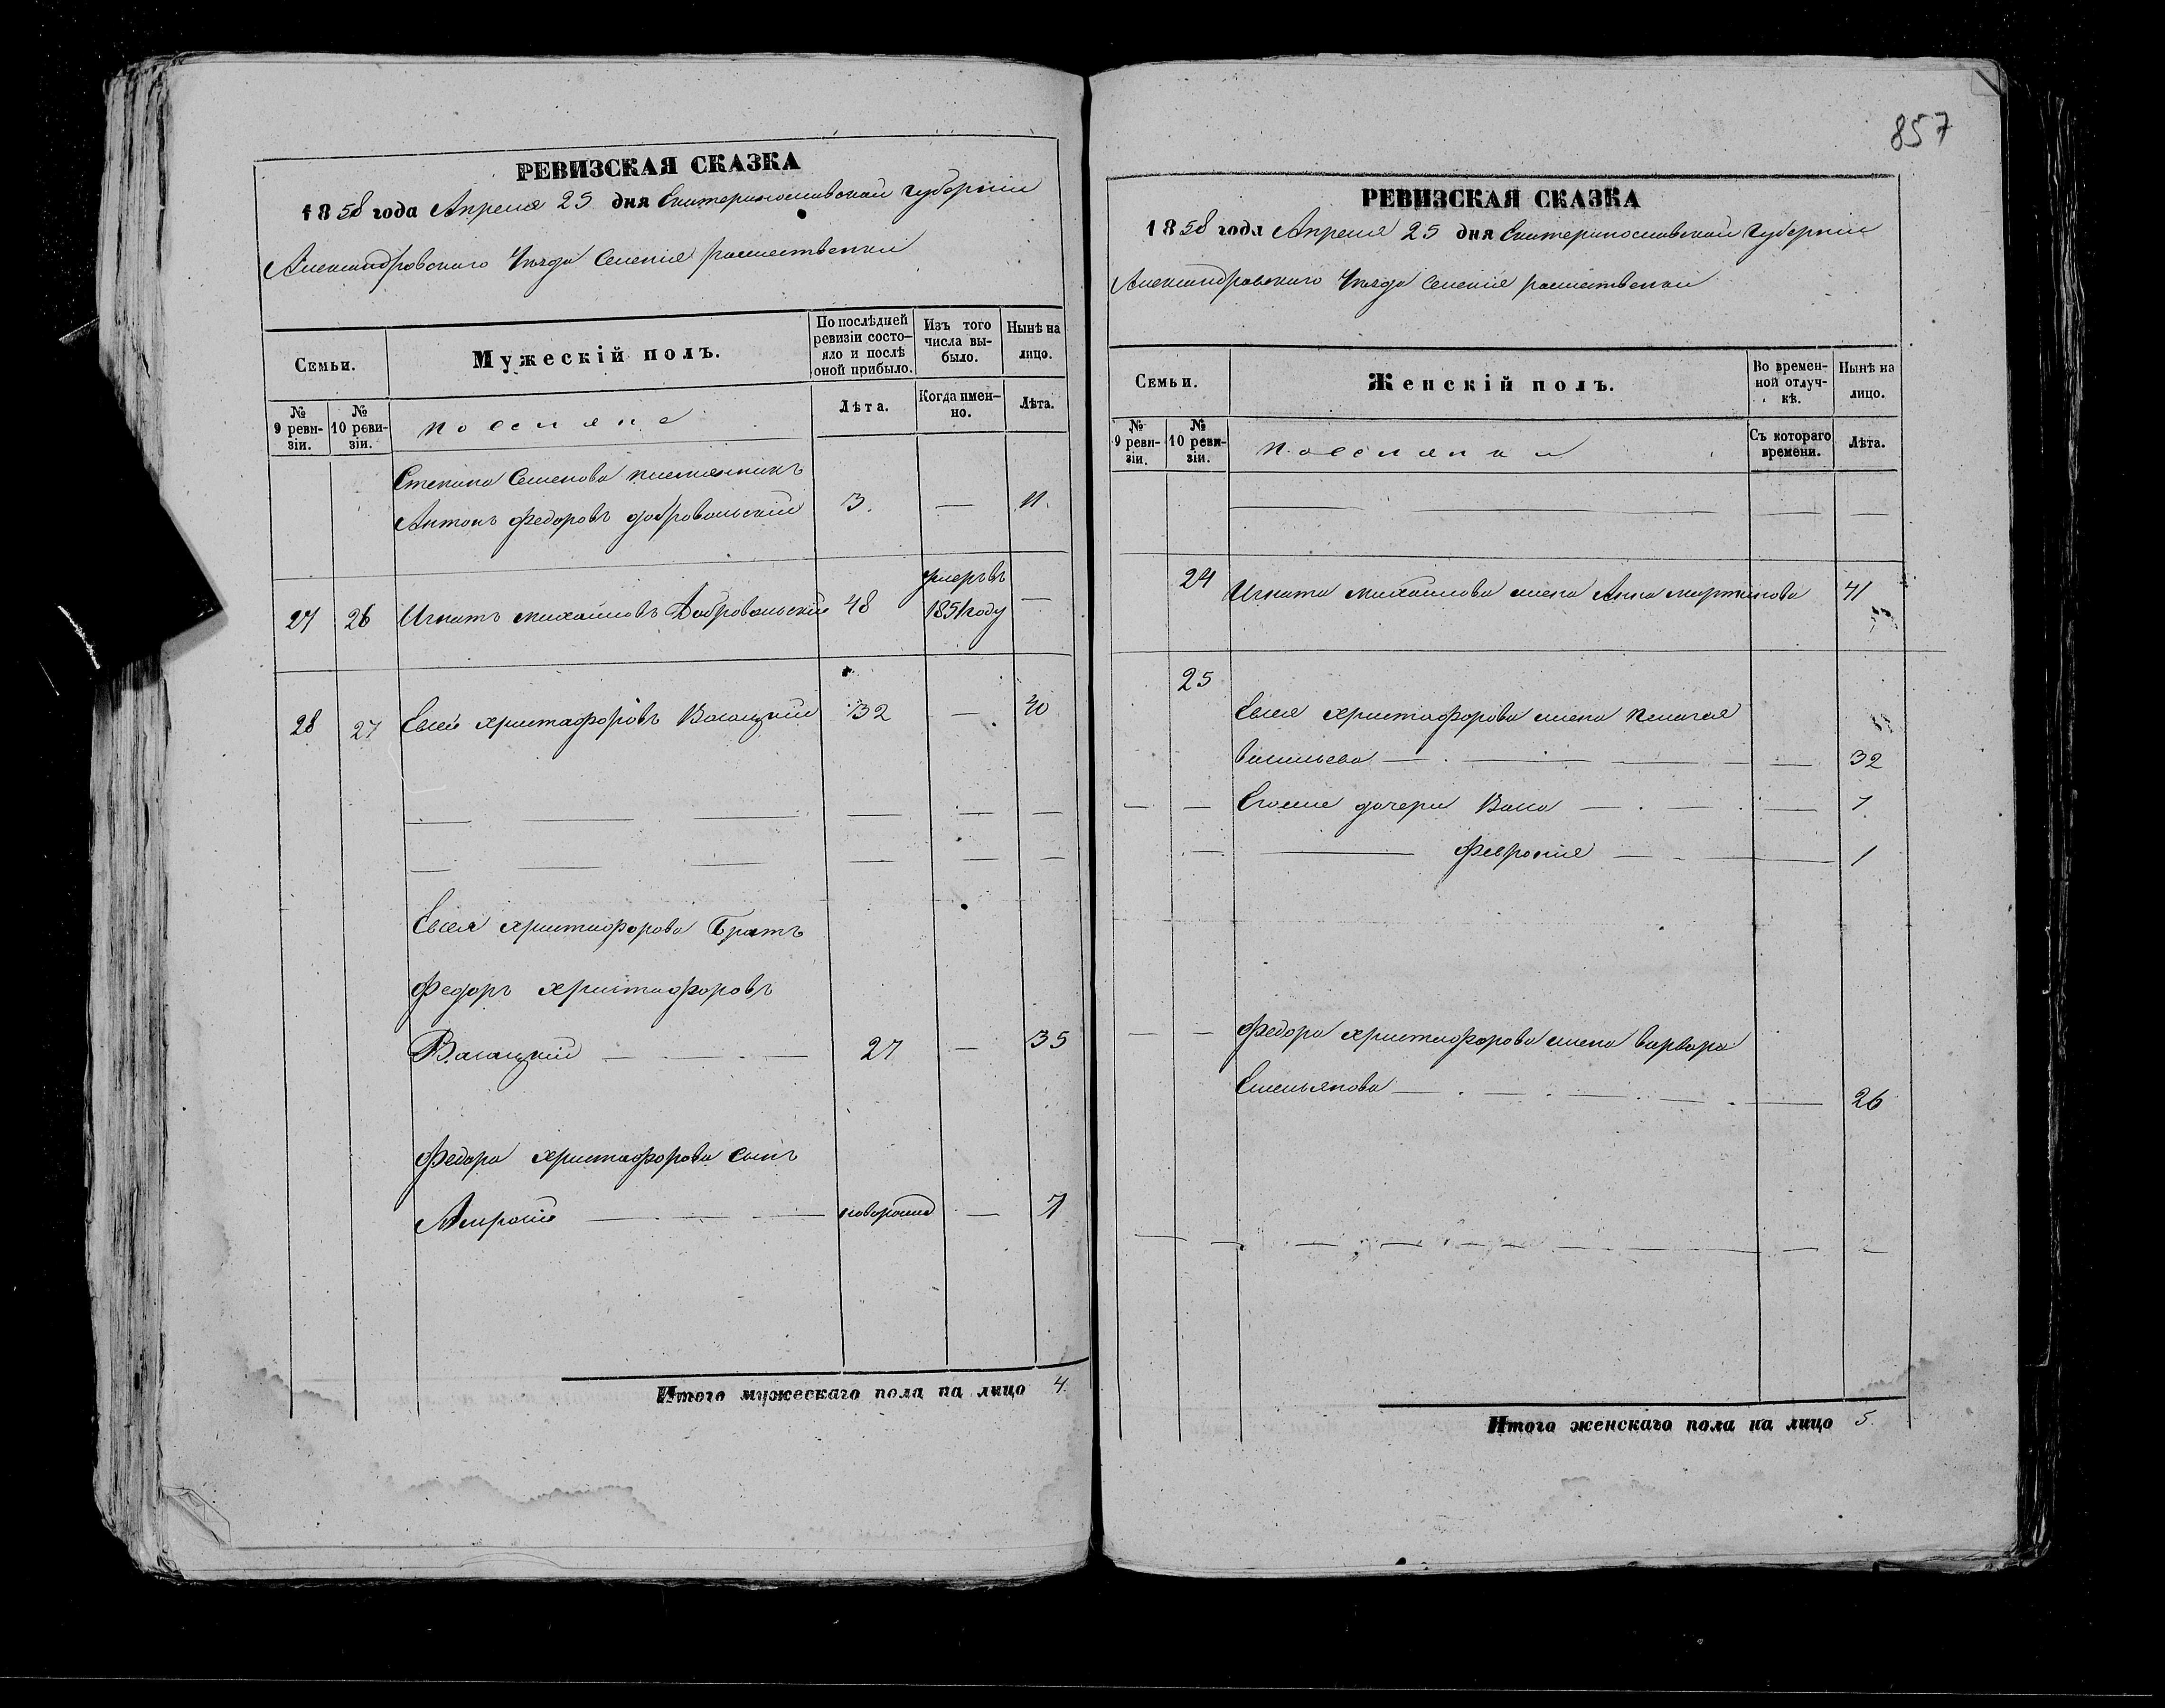 РЕВИЗСКАЯ СКАЗКА
1858 года Апреля 25 дня Екатеринославской Губернии
Александровского Уезда Селения рашественки
Семьи.
Мужескій полъ.
По послѣдней ревизіи состо-
яло и послѣ
оной прибыло.
Изъ того
числа вы-
было.
Нынѣ на
лицо.
№
9 реви-
зіи.
№
10 реви-
зіи.
поселяне
Лѣта.
Когда имен-
но.
Лѣта.
Степана Семенова племянникъ
Антонъ Федоровъ добровольский 3. — 11.
27 26 Игнатъ михайловъ Добровольский 48 умеръ въ 1851 году —
28 27 Евсей христофоровъ 32 — 40
Евсея христофорова Братъ
Федоръ христофоровъ
27 — 35
Федора христофорова сынъ
новорожд — 7
Итого мужескаго пола на лицо 4.
857
РЕВИЗСКАЯ СКАЗКА
1858 года Апреля 25 дня Екатеринославской Губернии
Александровского Уезда Селения рашественки
Семьи.
Женскій полъ.
Во времен-
ной отлуч-
кѣ.
Нынѣ на
лицо.
№
9 реви-
зіи.
№
10 реви-
зіи.
поселянки
Съ котораго
времени.
Лѣта.
24 Игната михайлова жена Анна мартинова 41
25
Евсея христофорова жена пелагея
васильева — 32
дочери — 7
феврония — 1
Федора христофорова жена варвара
Емельянова — 26
Итого женскаго пола на лицо 5.